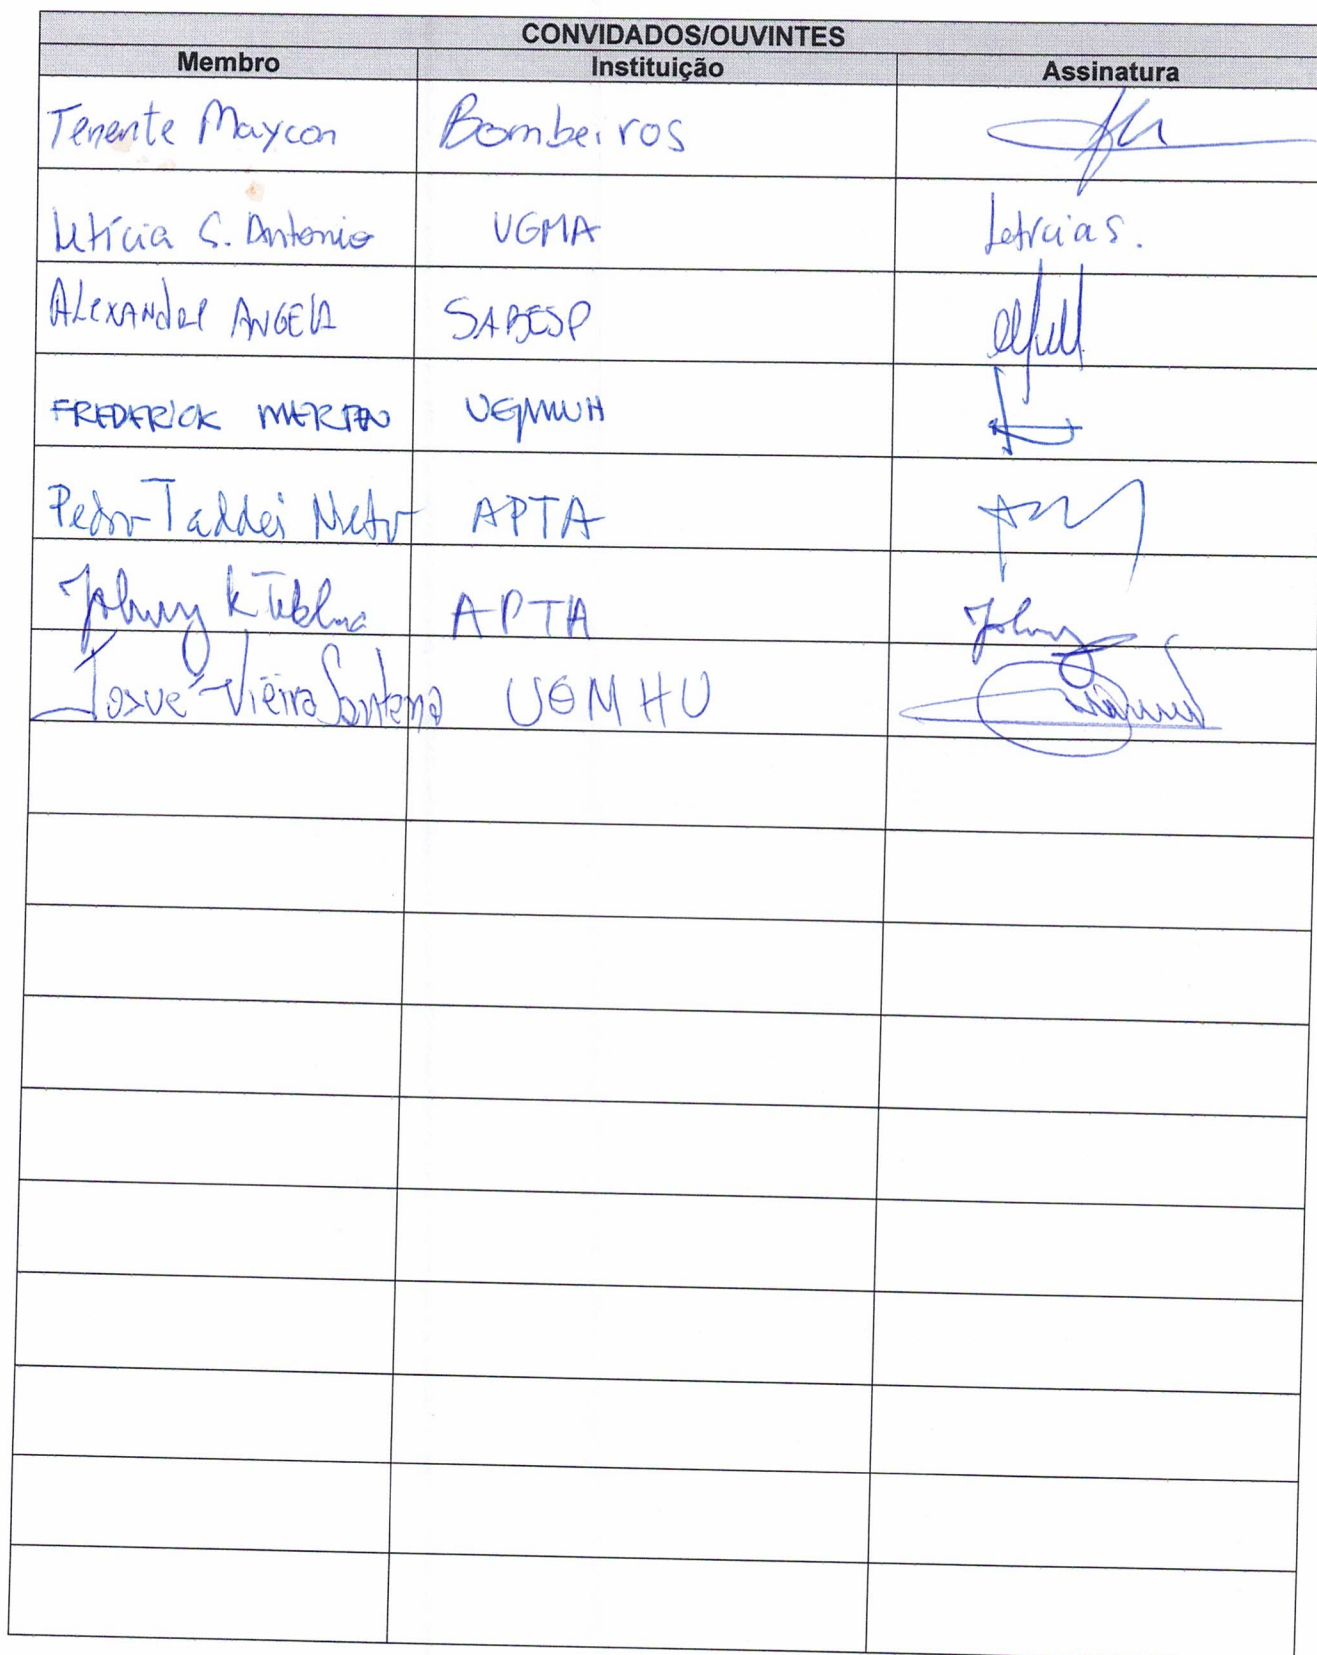 CONVIDADOS/OUVINTES
Membro Instituição Assinatura
Tenente Maycon Bombeiros
Letícia S. Antonio UGMA Letícia S.
ALEXANDRE ANGELI SABESP
FREDERICK
Pedro Taddei Neto APTA
Johnny K APTA Johnny
Josué Vieira Santana UGMHU